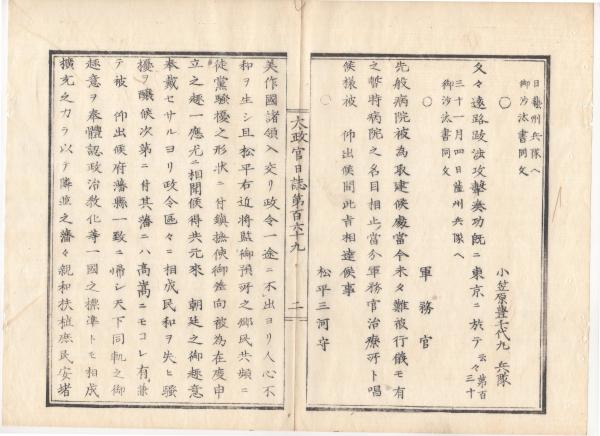 日藝州兵隊ヘ
御沙汰書同文
○
小笠原豊千代丸 兵隊
久々遠路跋渉攻撃奏功既ニ東京ニ於テ云々第百三十
三十一月四日薩州兵隊ヘ
御沙汰書同文
○
軍務官
先般病院被為取建候處當今未タ難被行儀モ有
之暫時病院之名目相止當分軍務官治療所ト唱
候様被 仰出候間此旨相達候事
○
松平三河守
太政官日誌第百六十九
二
美作國諸領入交リ政令一途ニ不出ヨリ人心不
和ヲ生シ且松平右近将監御預所之郷民共頻ニ
徒黨騒擾之形状ニ付鎮撫使御差向被為在度申
立之趣一應尤ニ相聞候得共元來 朝廷之御趣意
奉戴セサルヨリ政令區々ニ相成民和ヲ失ヒ騒
擾ヲ醸候次第ニ付其藩ニハ高嵩ニモコレ有兼
テ被 仰出候府藩縣一致ニ歸シ天下同軌之御
趣意ヲ奉體認政治教化等一國之標準トモ相成
擴充之力ラ以テ隣並之藩々親和扶植庶民安堵